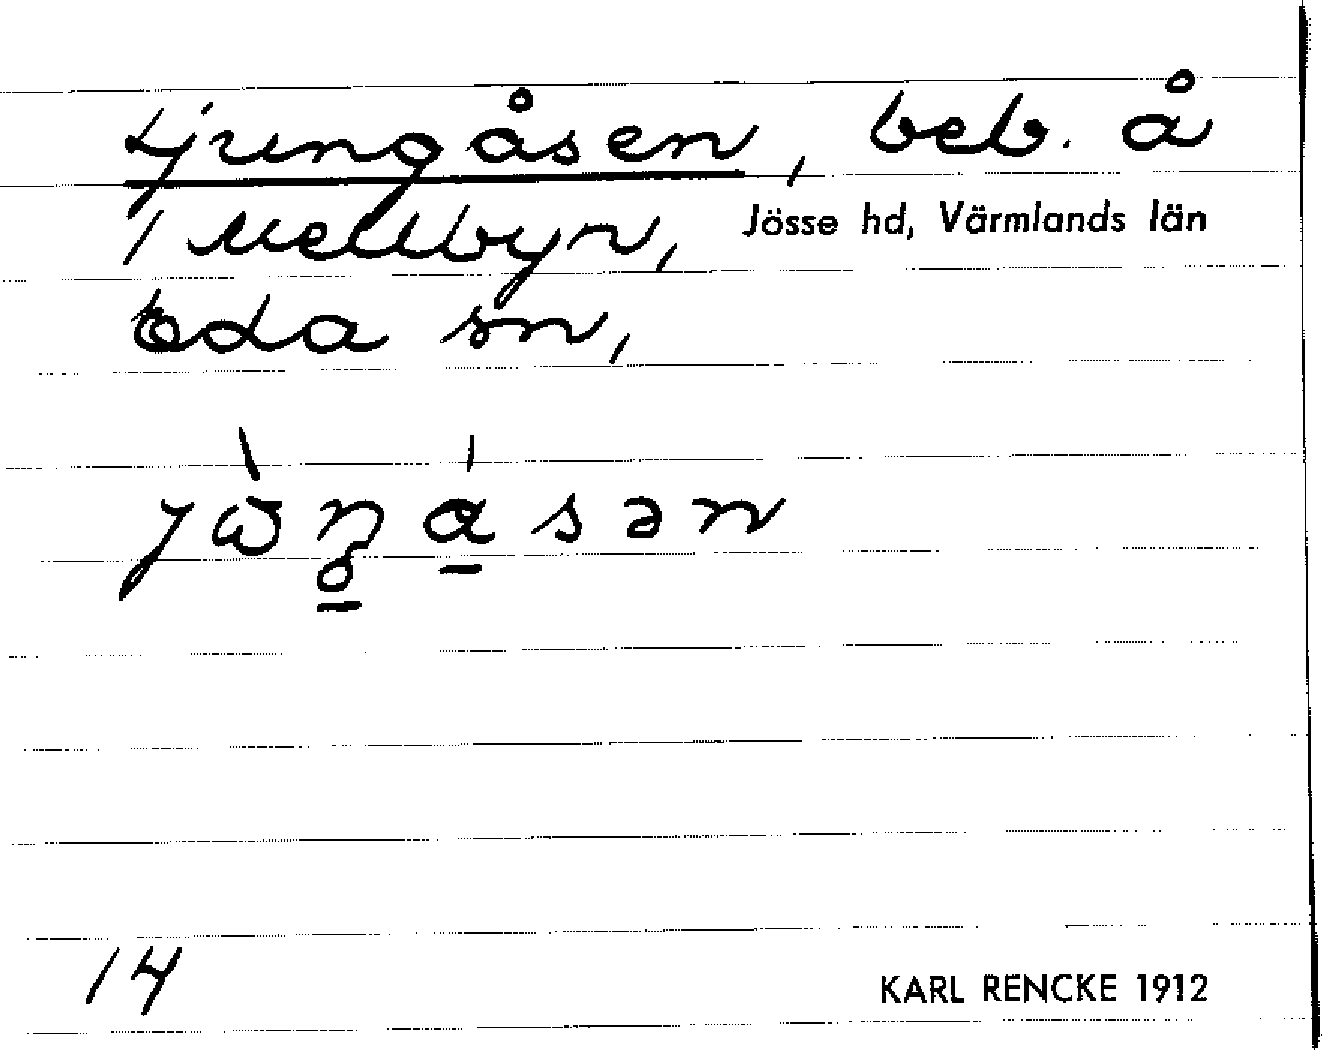 Ljungåsen, beb. å
1 Mellbyn, Jösse hd, Värmlands län
Eda sn,
14
KARL RENCKE 1912